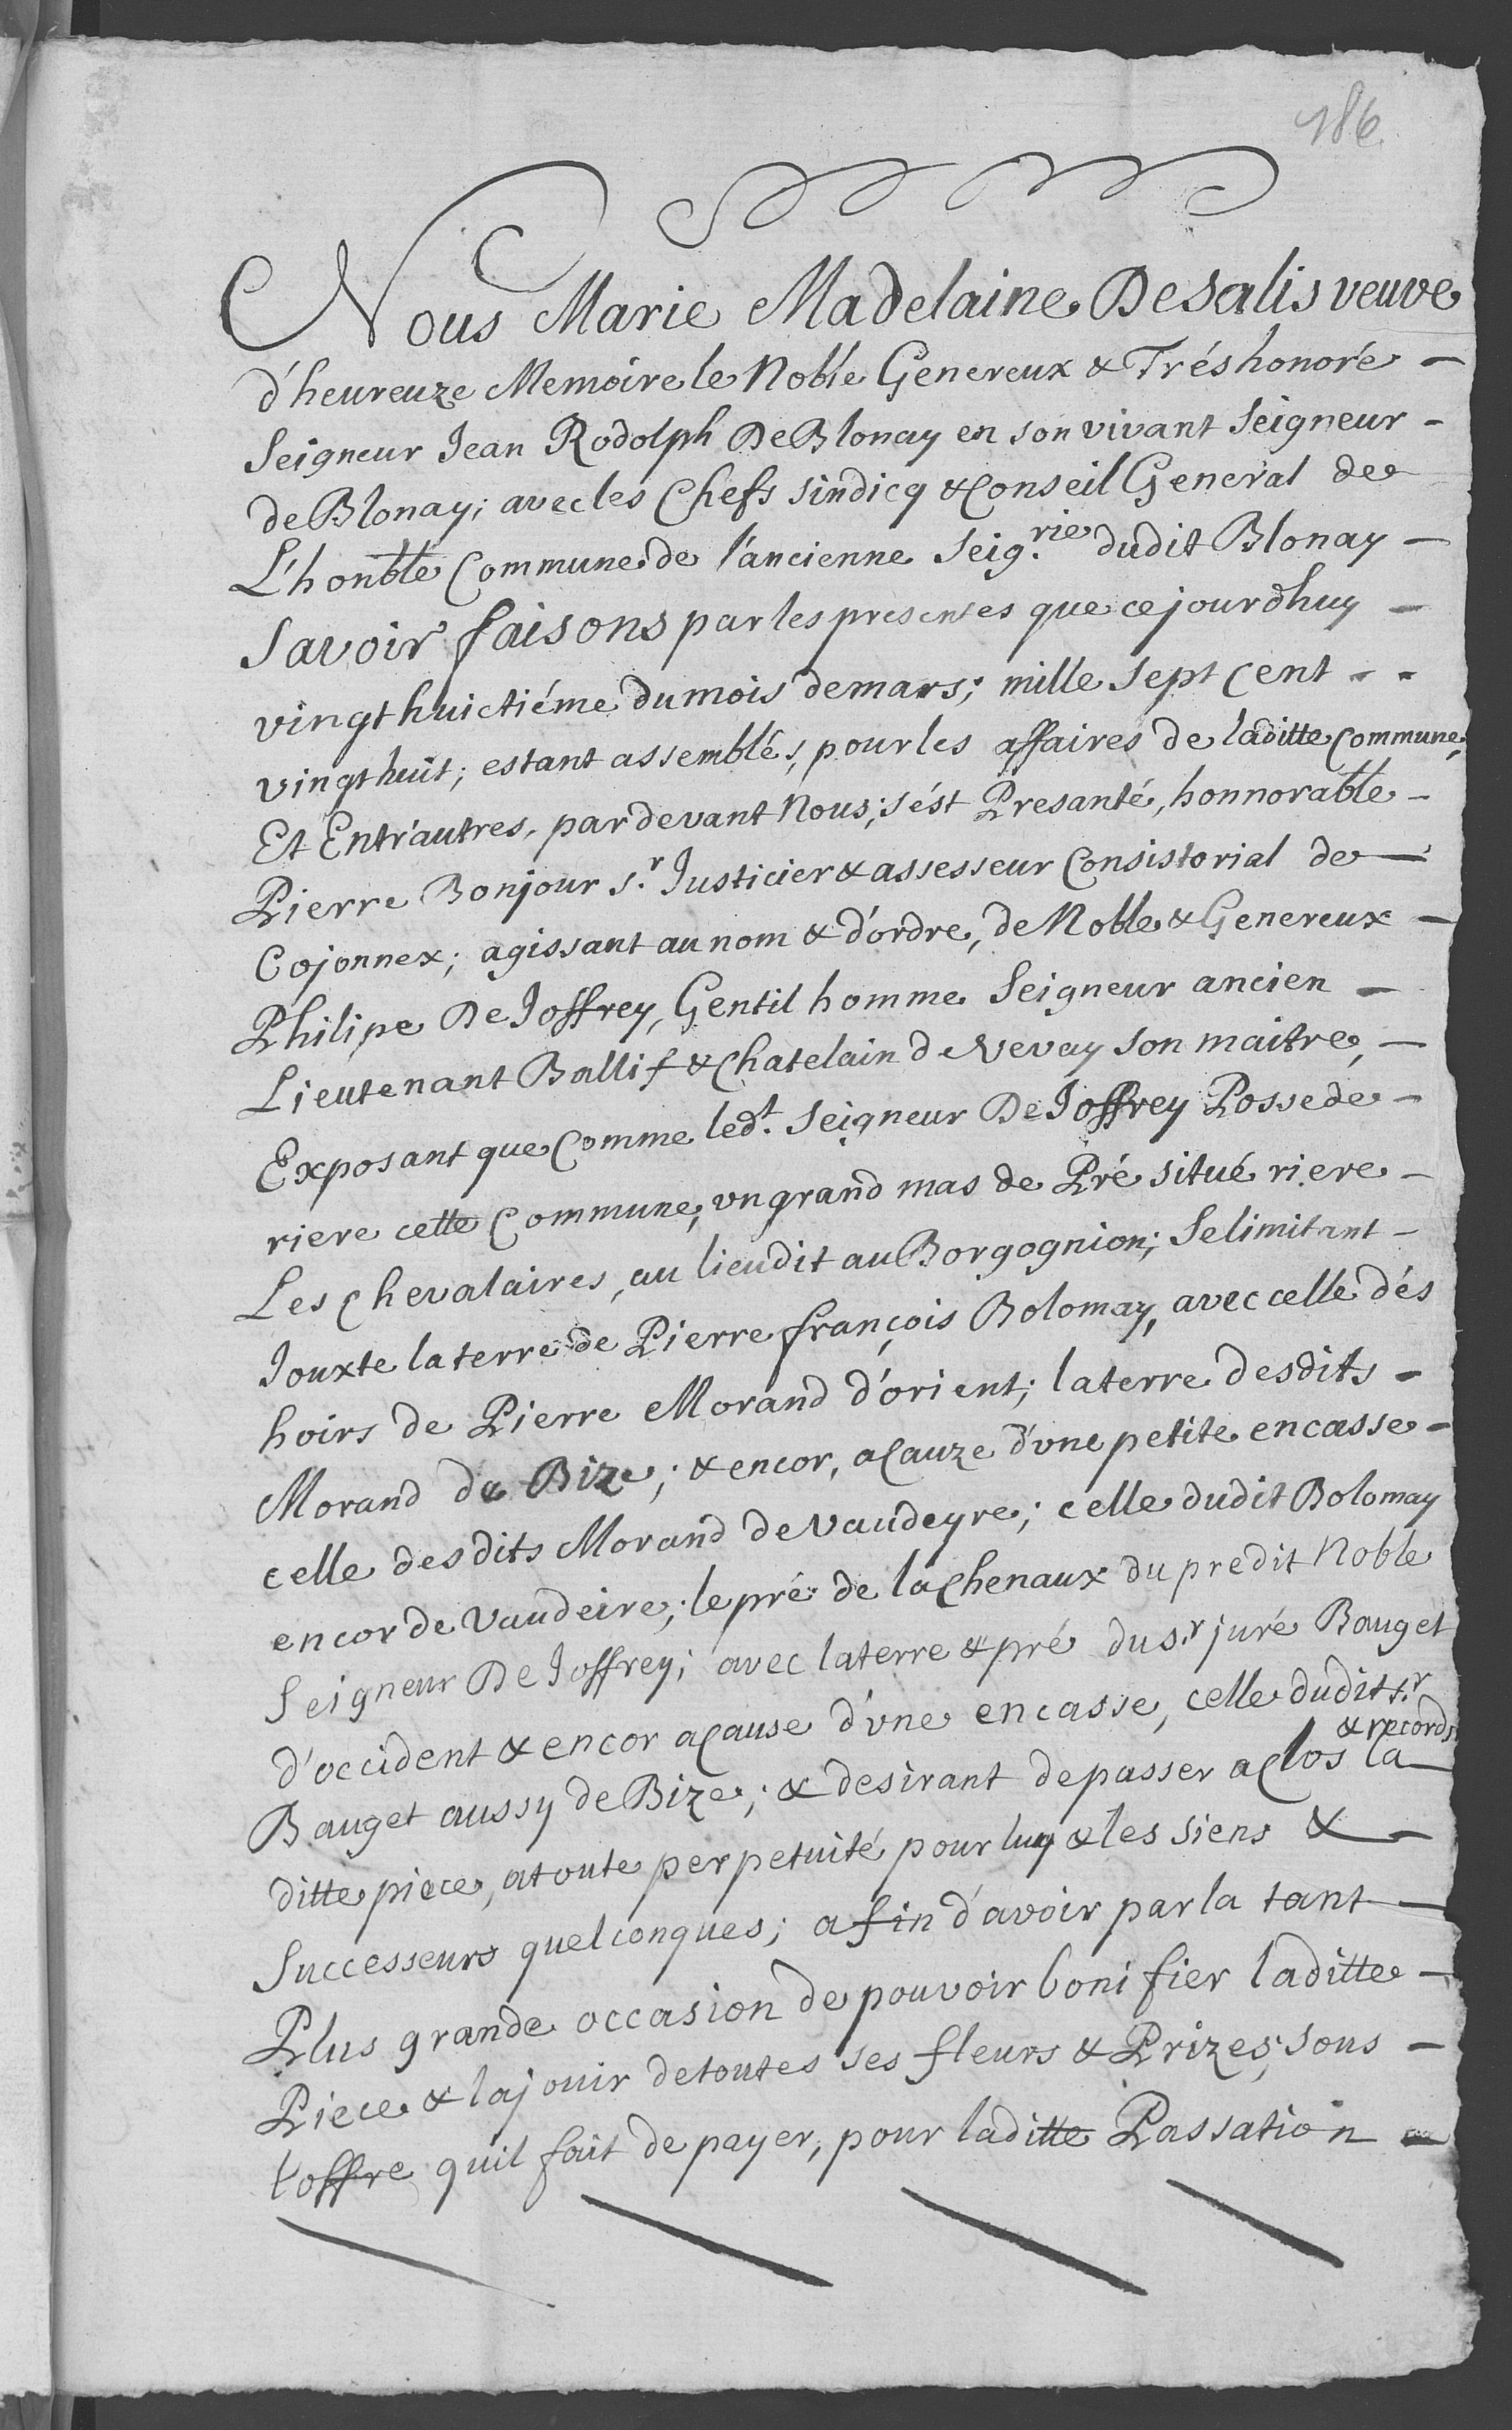 186
Nous Marie Madelaine De Salis veuve
d'heureuze Memoire le Noble Genereux & Trés honoré -
Seigneur Jean Rodolph De Blonay en son vivant Seigneur -
de Blonay; avec les Chefs sindicq & Conseil General de
L'honble Commune de l'ancienne Seig.rie dudit Blonay -
Savoir faisons par les presentes que cejourdhuy -
vingt huictiéme du mois de mars; mille sept cent - -
vingt huit; estant assemblés, pour les affaires de laditte Commune,
Et Entr'autres, par devant Nous; s'ést Presanté, honnorable -
Pierre Bonjour S.r Justicier & assesseur Consistorial de -
Cojonnex; agissant au nom & d'ordre, de Noble & Genereux -
Philipe De Joffrey, Gentil homme Seigneur ancien -
Lieutenant Ballif & Chatelain de Vevay son maitre, -
Exposant que Comme led.t Seigneur De Joffrey Possede -
riere cette Commune, un grand mas de Pré situé riere -
Les Chevalaires, au lieudit au Borgognion; Se limitant -
Jouxte la terre de Pierre françois Bolomay, avec celle dés
hoirs de Pierre Morand d'orient; la terre desdits -
Morand de Bize; & encor, a Cauze d'une petite encasse -
celle desdits Morand de Vaudeyre; celle dudit Bolomay
encor de Vaudeire; le pré de la Chenaux du predit Noble
Seigneur De Joffrey; avec la terre & pré du S.r juré Bauget
d'occident & encor a Cause d'une encasse, celle dudit S.r
Bauget aussy de Bize; & desirant de passer a Clos & records la
ditte piece, a toute perpetuité pour luy & les siens & -
Successeurs quelconques; afin d'avoir par la tant -
Plus grande occasion de pouvoir bonifier laditte -
Piece & la jouir de toutes ses fleurs & Prizes; sous -
l'offre quil fait de payer, pour laditte Passation -